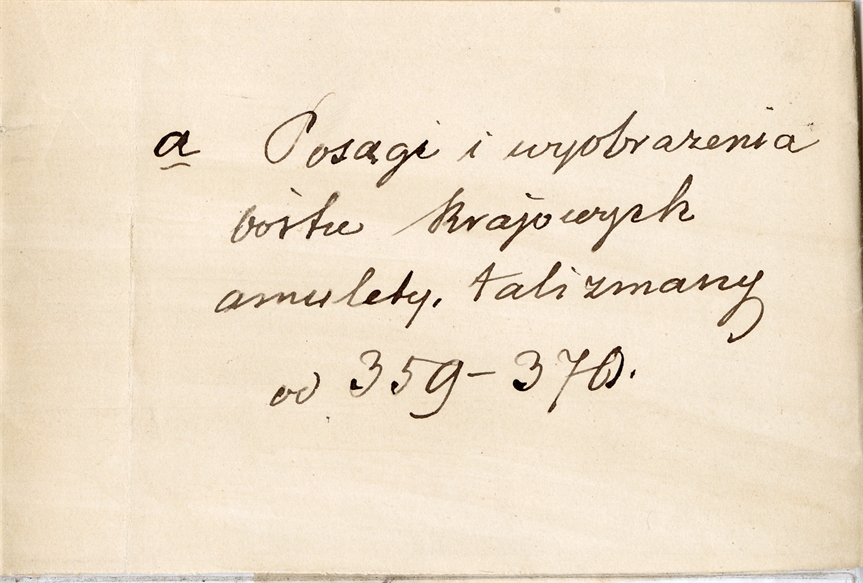 a Posągi i wyobrażenia
bóstw krajowych
amulety, talizmany
od 359–370.